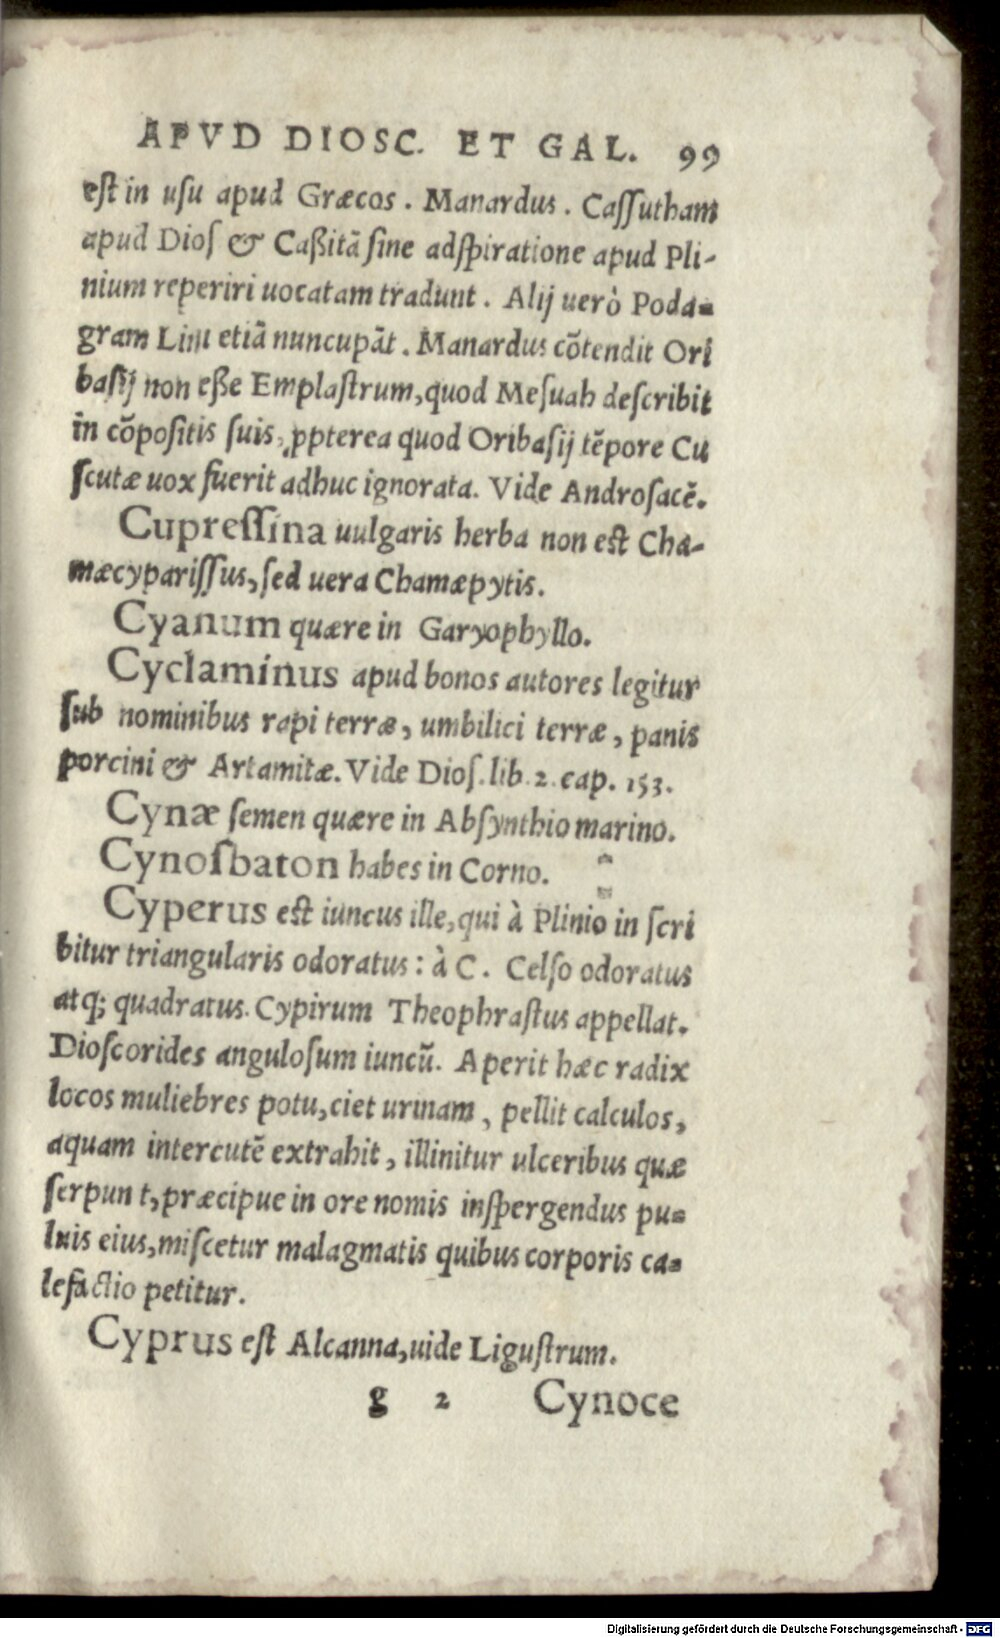 APVD DIOSC. ET GAL. 99
est in usu apud Græcos. Manardus. Cassutham
apud Dios & Caßitā sine adspiratione apud Pli-
nium reperiri uocatam tradunt. Alij uerò Poda-
gram Lini etiā nuncupāt. Manardus cōtendit Ori
basij non eße Emplastrum, quod Mesuah describit
in cōpositis suis, ꝓpterea quod Oribasij tēpore Cu
scutæ uox fuerit adhuc ignorata. Vide Androsacē.
Cupressina uulgaris herba non est Cha-
mæcyparissus, sed uera Chamæpytis.
Cyanum quære in Garyophyllo.
Cyclaminus apud bonos autores legitur
sub nominibus rapi terræ, umbilici terræ, panis
porcini & Artamitæ. Vide Dios. lib. 2. cap. 153.
Cynæ semen quære in Absynthio marino.
Cynosbaton habes in Corno.
Cyperus est iuncus ille, qui à Plinio in scri
bitur triangularis odoratus: à C. Celso odoratus
atq; quadratus. Cypirum Theophrastus appellat.
Dioscorides angulosum iuncū. Aperit hæc radix
locos muliebres potu, ciet urinam, pellit calculos,
aquam intercutē extrahit, illinitur ulceribus quæ
serpunt, præcipue in ore nomis inspergendus pu-
luis eius, miscetur malagmatis quibus corporis ca-
lefactio petitur.
Cyprus est Alcanna, uide Ligustrum.
g 2 Cynoce
Digitalisierung gefördert durch die Deutsche Forschungsgemeinschaft - DFG